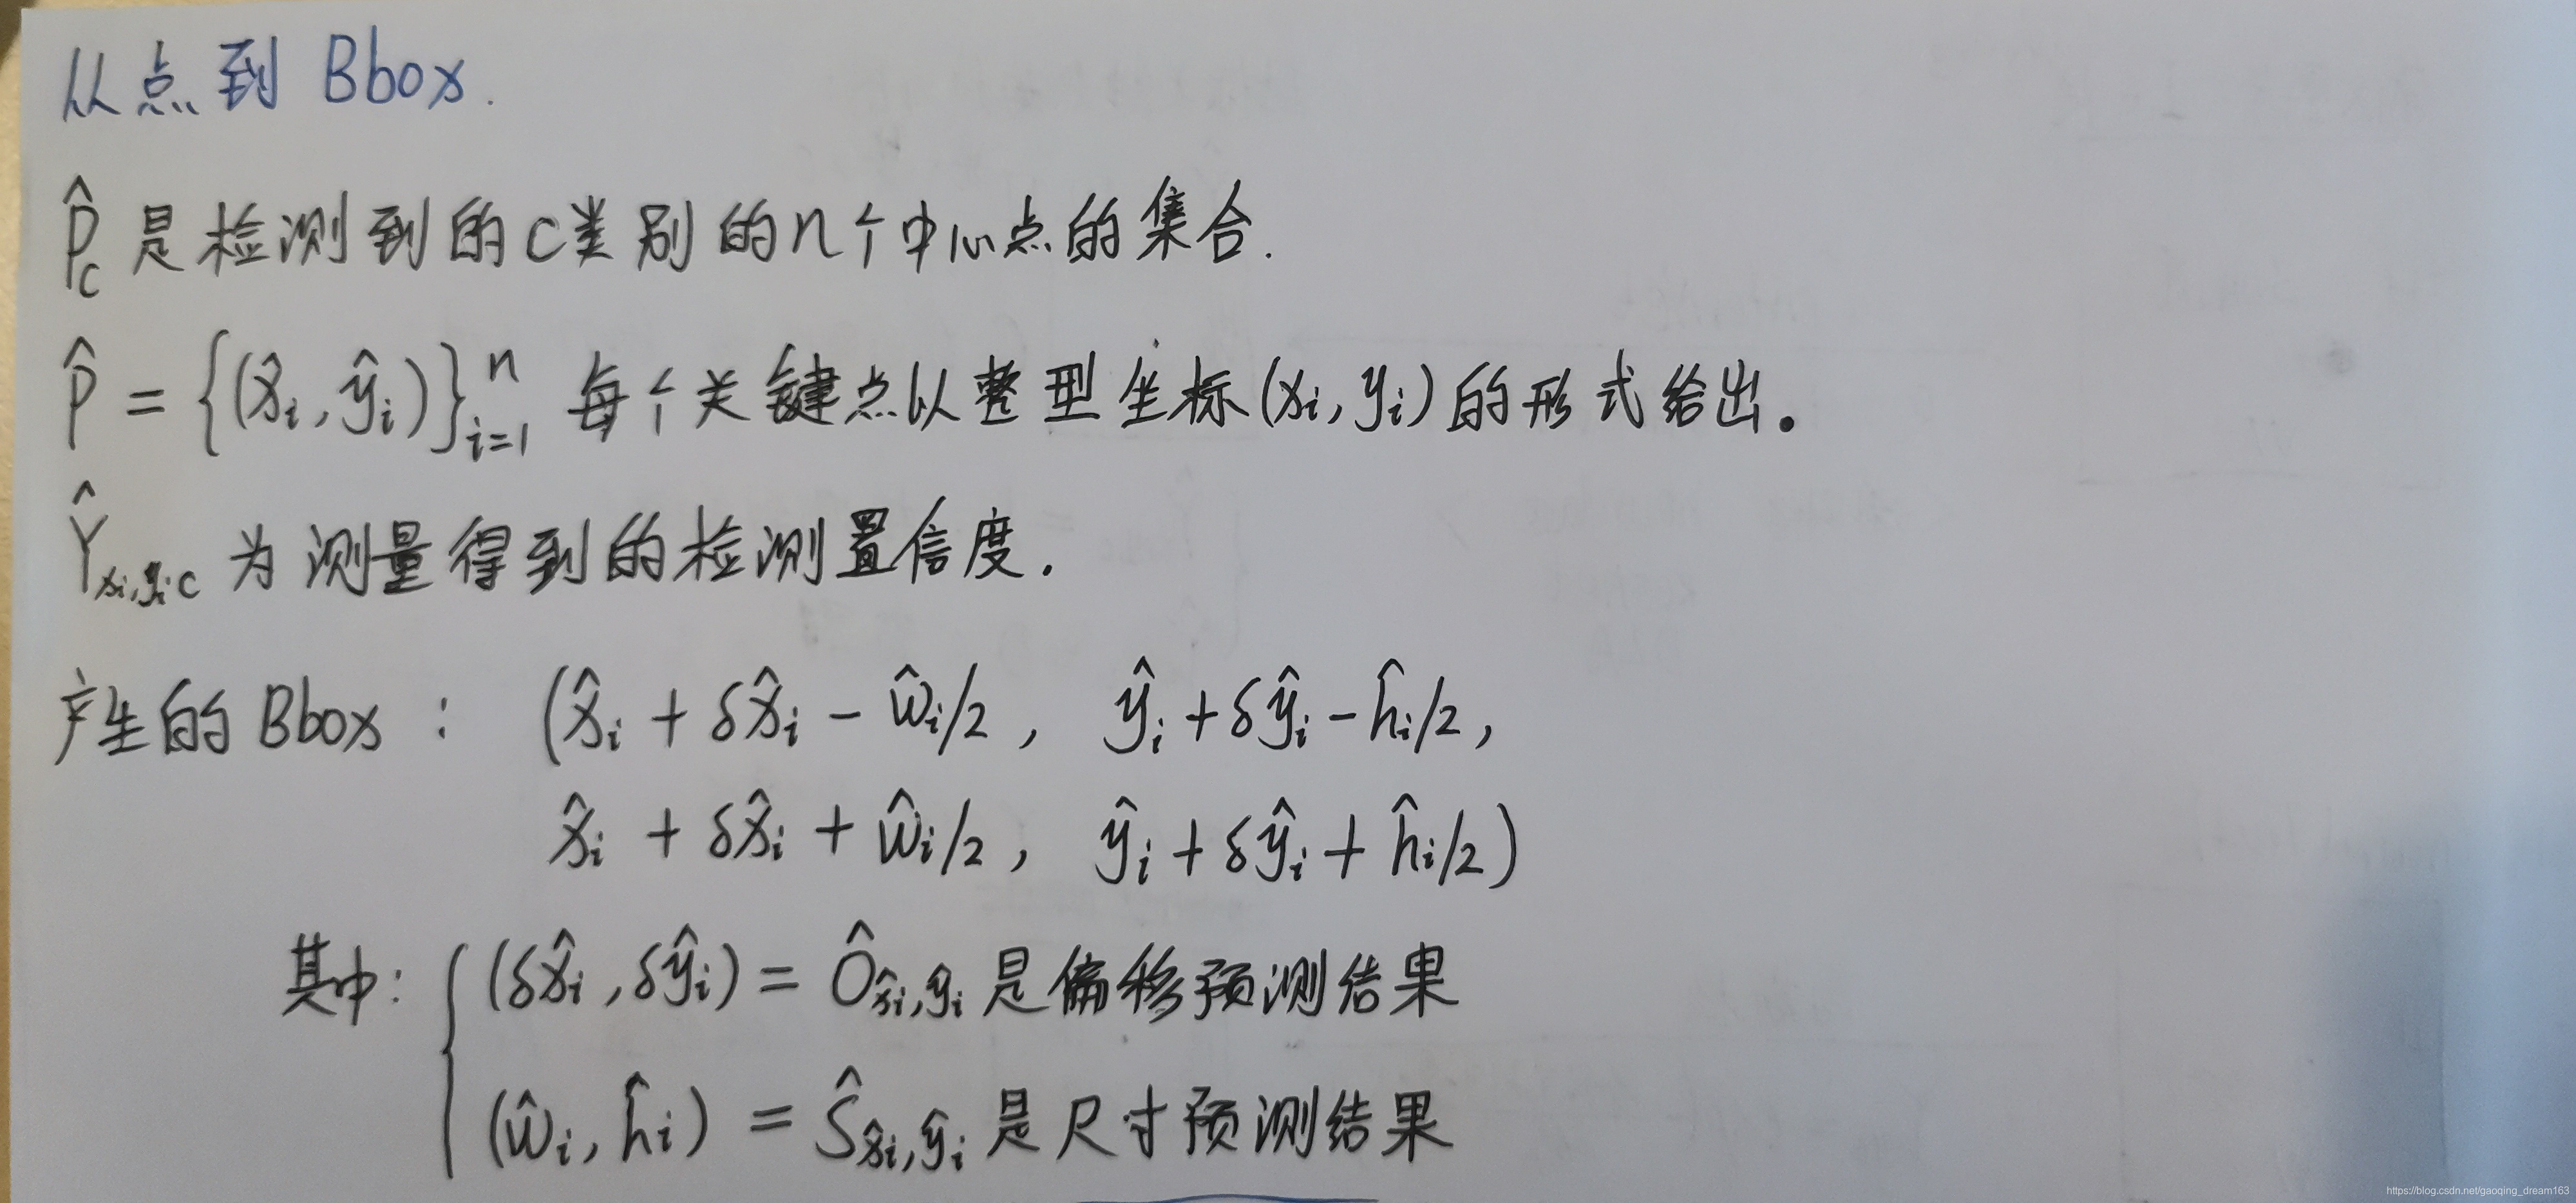 从点到 Bbox.
P̂c 是检测到的C类别的n个中心点的集合.
P̂ = {(x̂i, ŷi)}ⁿi=1 每个关键点以整型坐标(xi, yi)的形式给出。
Ŷxi,yi,c 为测量得到的检测置信度.
产生的Bbox : (x̂i + δx̂i − ŵi/2, ŷi + δŷi − ĥi/2,
x̂i + δx̂i + ŵi/2, ŷi + δŷi + ĥi/2)
其中: { (δx̂i, δŷi) = Ôx̂i,ŷi 是偏移预测结果
(ŵi, ĥi) = Ŝx̂i,ŷi 是尺寸预测结果
https://blog.csdn.net/gaoqing_dream163